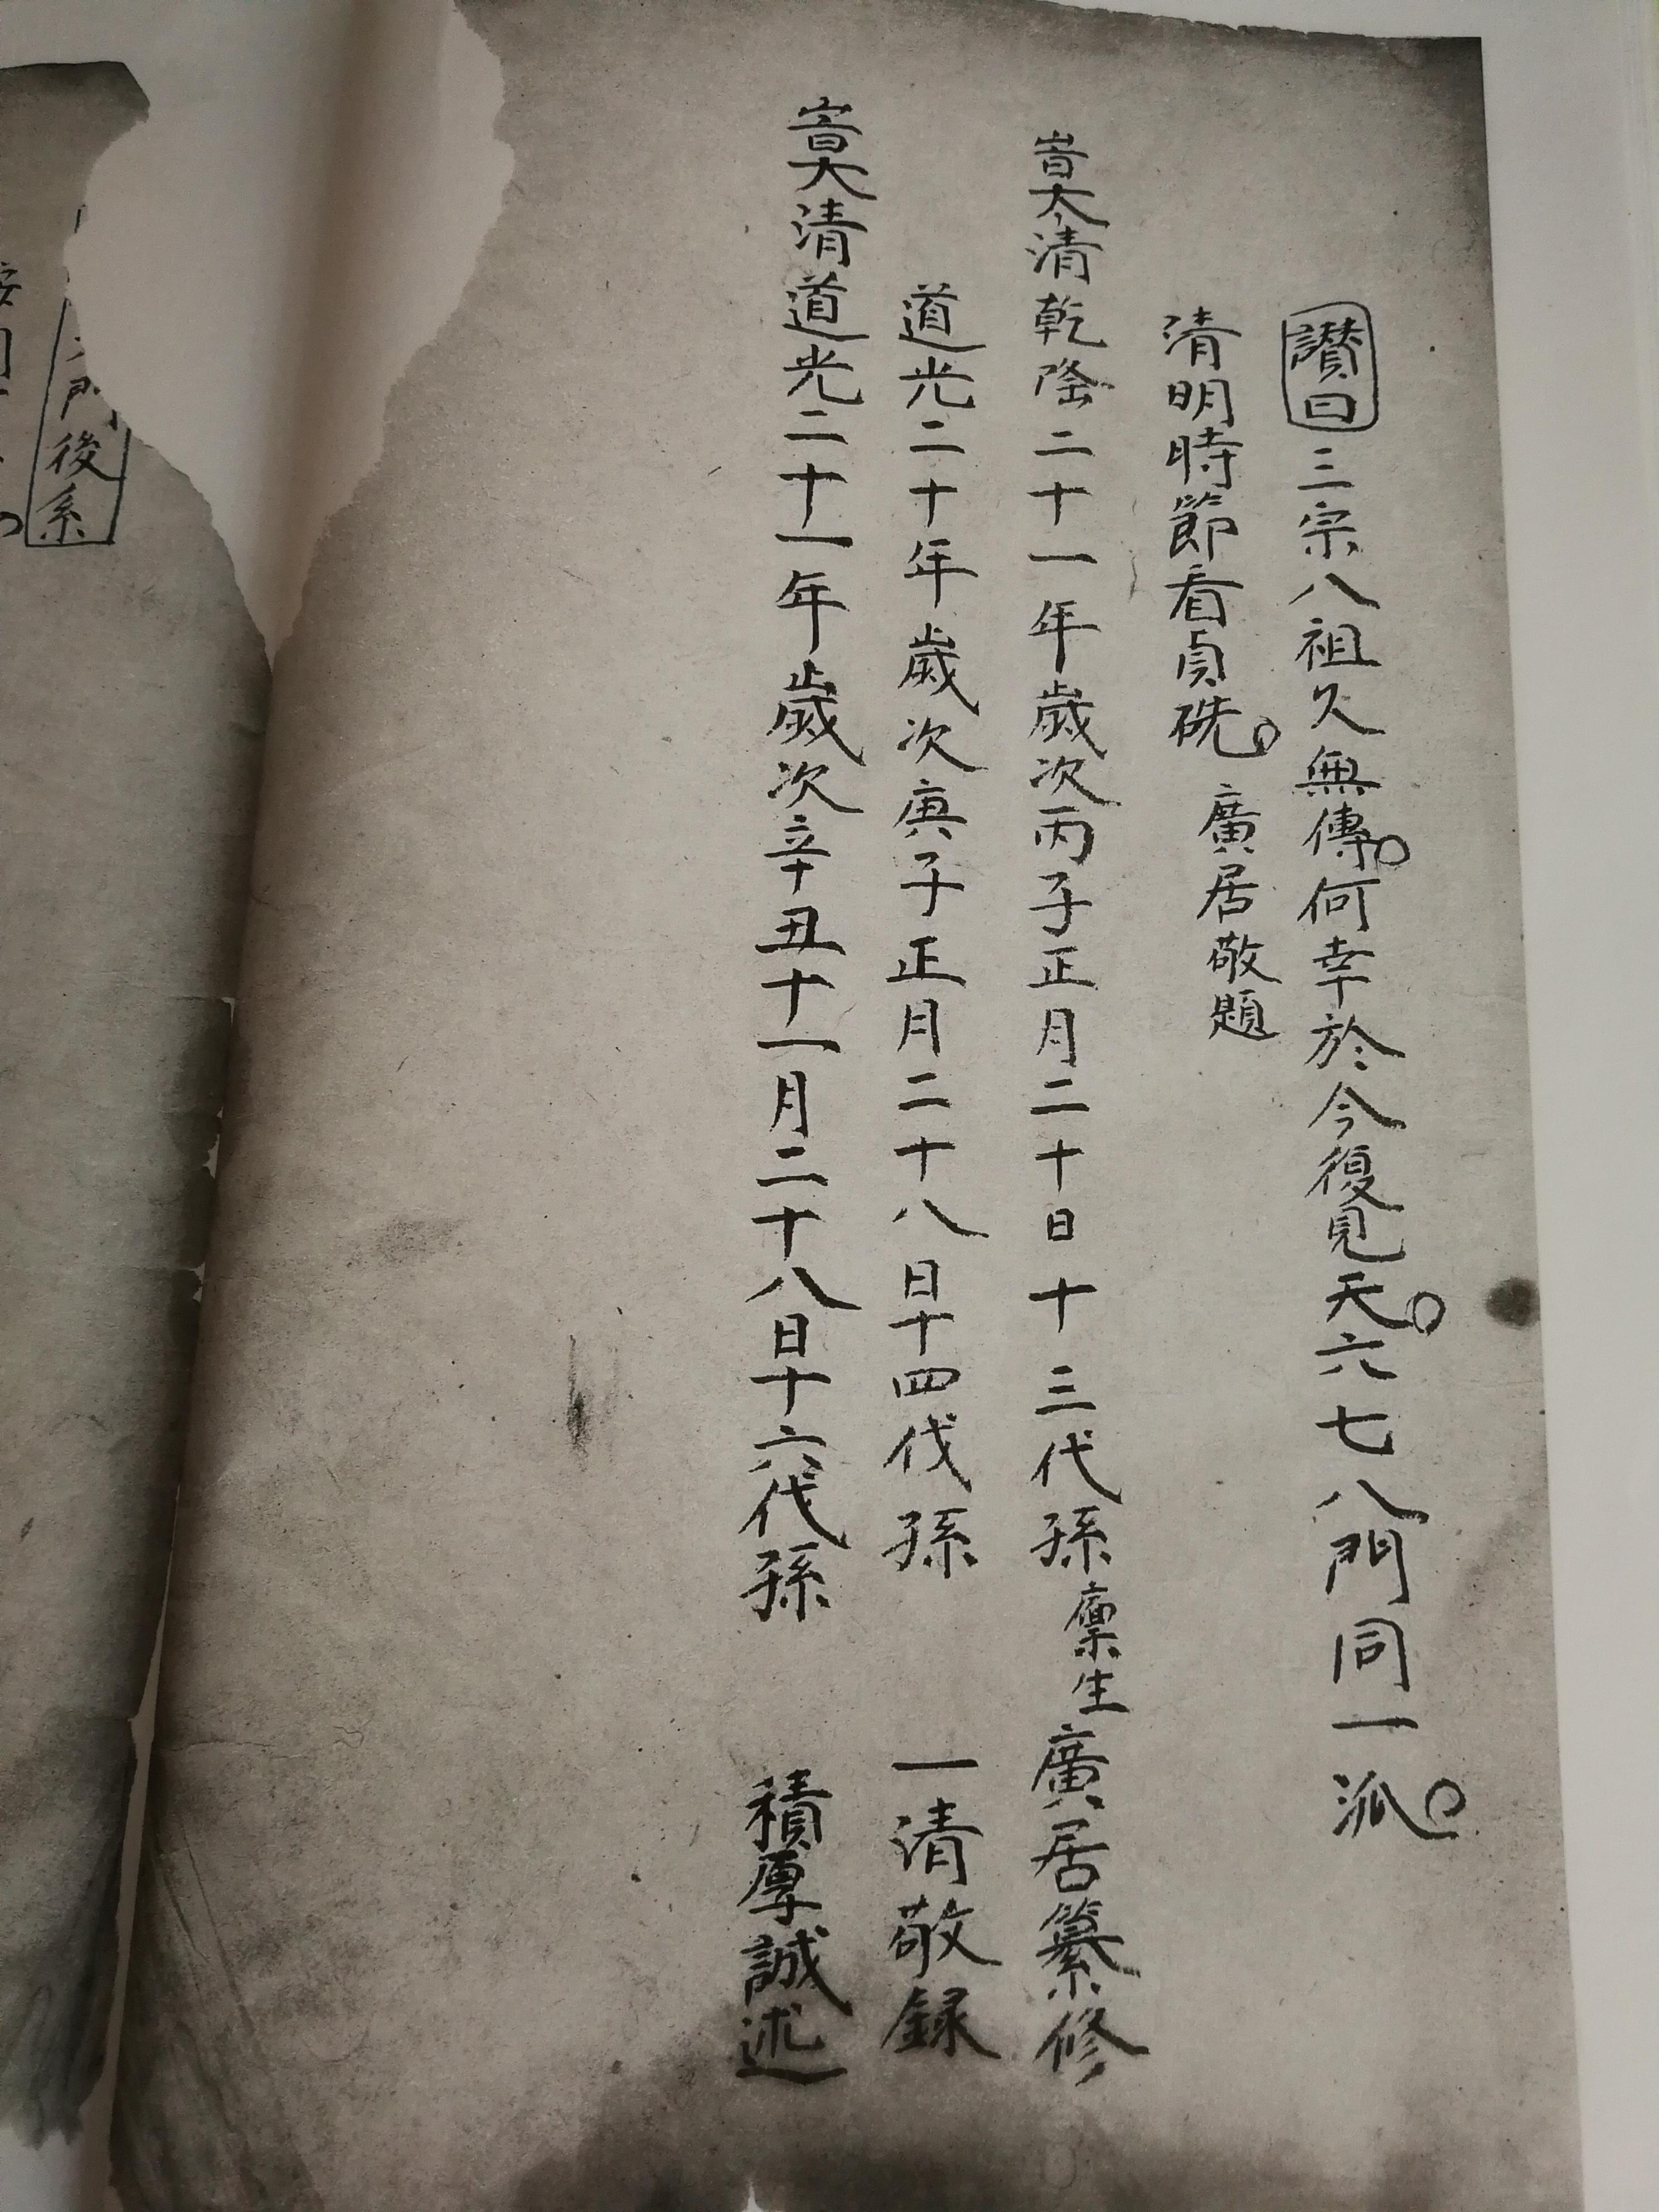 讃曰三宗八祖久無傳何幸於今復見天六七八門同一派
清明時節看貞珗
廣居敬題
旹大清乾隆二十一年歲次丙子正月二十日十三代孫廩生廣居纂修
道光二十年歲次庚子正月二十八日十四代孫一清敬録
大清道光二十一年歲次辛丑十一月二十八日十六代孫積厚誠述
門後系